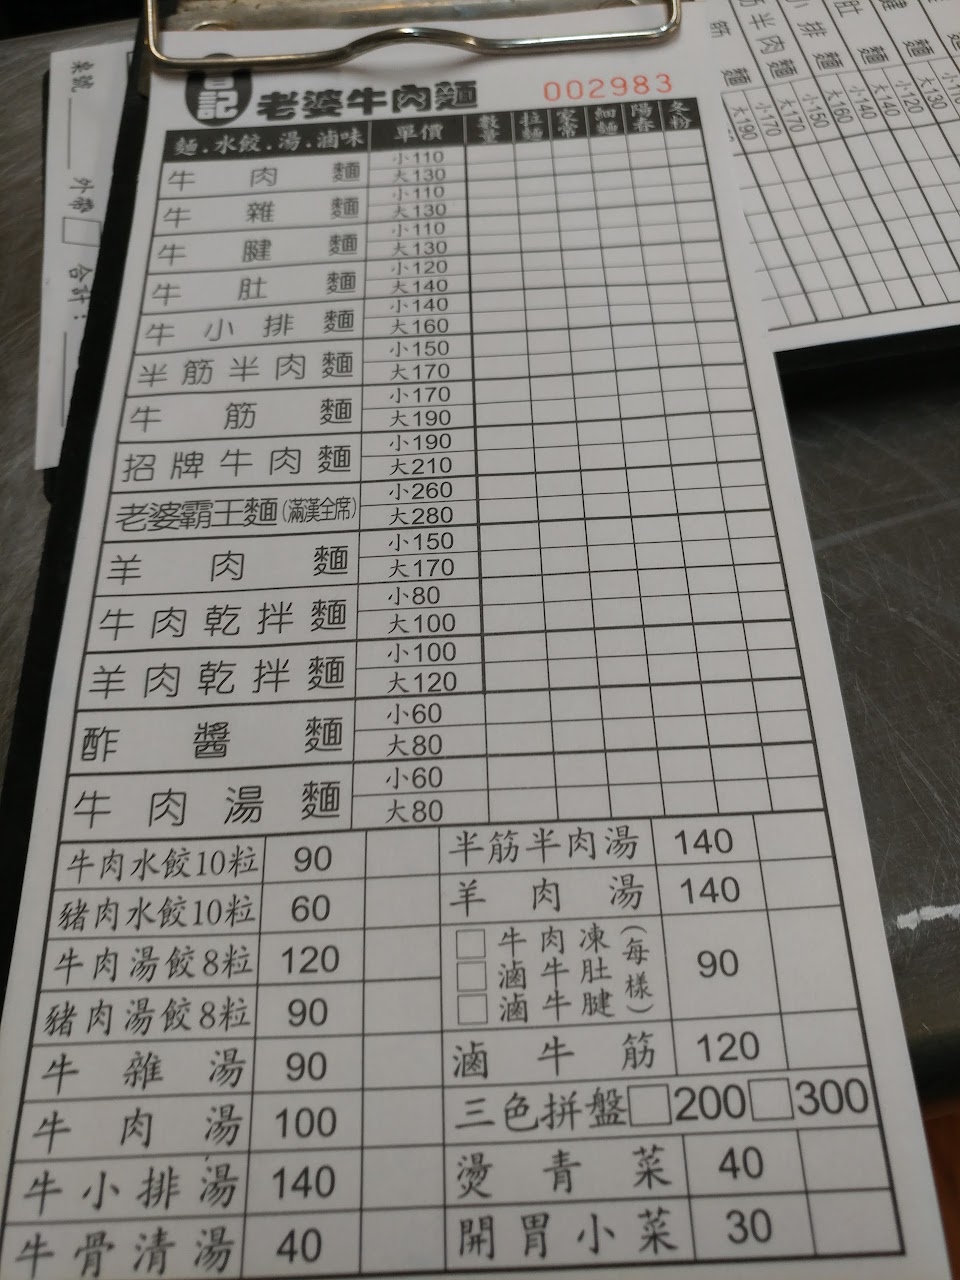 昌記 老婆牛肉麵 002983
麵.水餃.湯.滷味 單價 數量 拉麵 家常 細麵 陽春 冬粉
牛肉麵 小110
大130
牛雜麵 小110
大130
牛腱麵 小110
大130
牛肚麵 小120
大140
牛小排麵 小140
大160
半筋半肉麵 小150
大170
牛筋麵 小170
大190
招牌牛肉麵 小190
大210
老婆霸王麵(滿漢全席) 小260
大280
羊肉麵 小150
大170
牛肉乾拌麵 小80
大100
羊肉乾拌麵 小100
大120
酢醬麵 小60
大80
牛肉湯麵 小60
大80
牛肉水餃10粒 90
豬肉水餃10粒 60
牛肉湯餃8粒 120
豬肉湯餃8粒 90
牛雜湯 90
牛肉湯 100
牛小排湯 140
牛骨清湯 40
半筋半肉湯 140
羊肉湯 140
牛肉凍
滷牛肚
滷牛腱
(每樣) 90
滷牛筋 120
三色拼盤 200 300
燙青菜 40
開胃小菜 30
桌號 外帶 合計:
小排麵 小140
大160
半肉麵 小150
大170
筋麵 小170
大190
肚麵 小120
大140
腱麵
大130